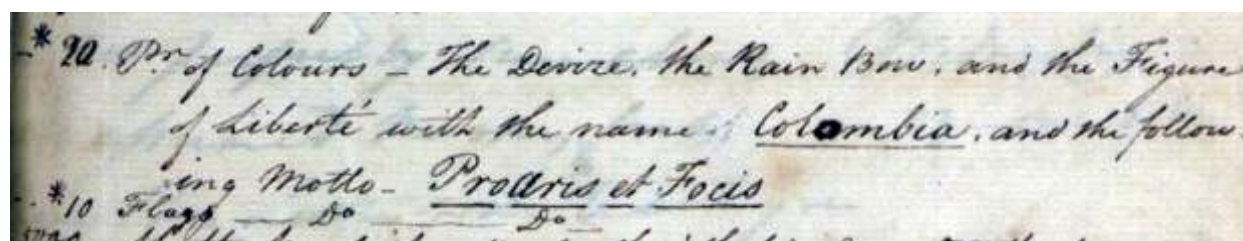 * 20. Pr of Colours – The Devize, the Rain Bow, and the Figure
of Liberté with the name Colombia, and the follow-
ing Motto – Pro Aris et Focis
* 10 Flags Do Do